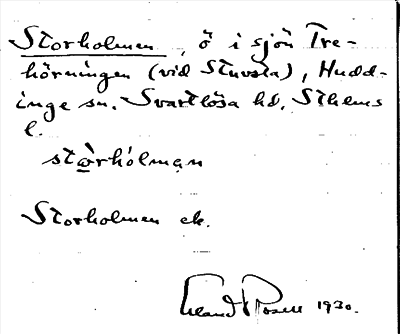 Storholmen, ö i sjön Tre-
hörningen (vid Stuvsta), Hudd-
inge sn. Svartlösa hd. Sthlms
l.
stòrhólman
Storholmen ek.
Erland Rosell 1930.